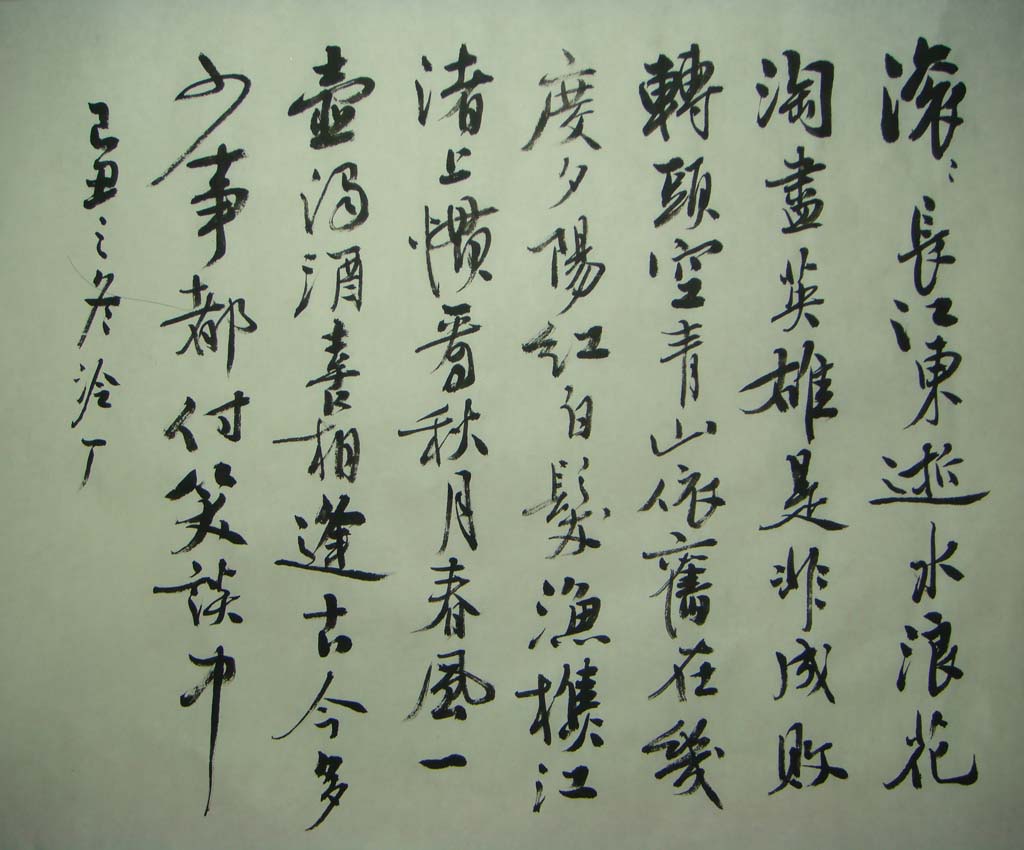 滚〻長江東逝水浪花
淘盡英雄是非成敗
轉頭空青山依舊在幾
度夕陽紅白髮漁樵江
渚上慣看秋月春風一
壺濁酒喜相逢古今多
少事都付笑談中
己丑之冬冷丁